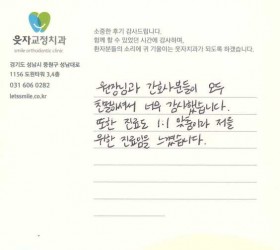 웃자교정치과
smile orthodontic clinic
경기도 성남시 중원구 성남대로
1156 도원타워 3,4층
031 606 0282
letssmile.co.kr
소중한 후기 감사드립니다.
함께 할 수 있었던 시간에 감사하며,
환자분들의 소리에 귀 기울이는 웃자치과가 되도록 하겠습니다.
원장님과 간호사분들이 모두
친절하셔서 너무 감사했습니다.
또한 진료도 1:1 맞춤이라 저를
위한 진료임을 느꼈습니다.